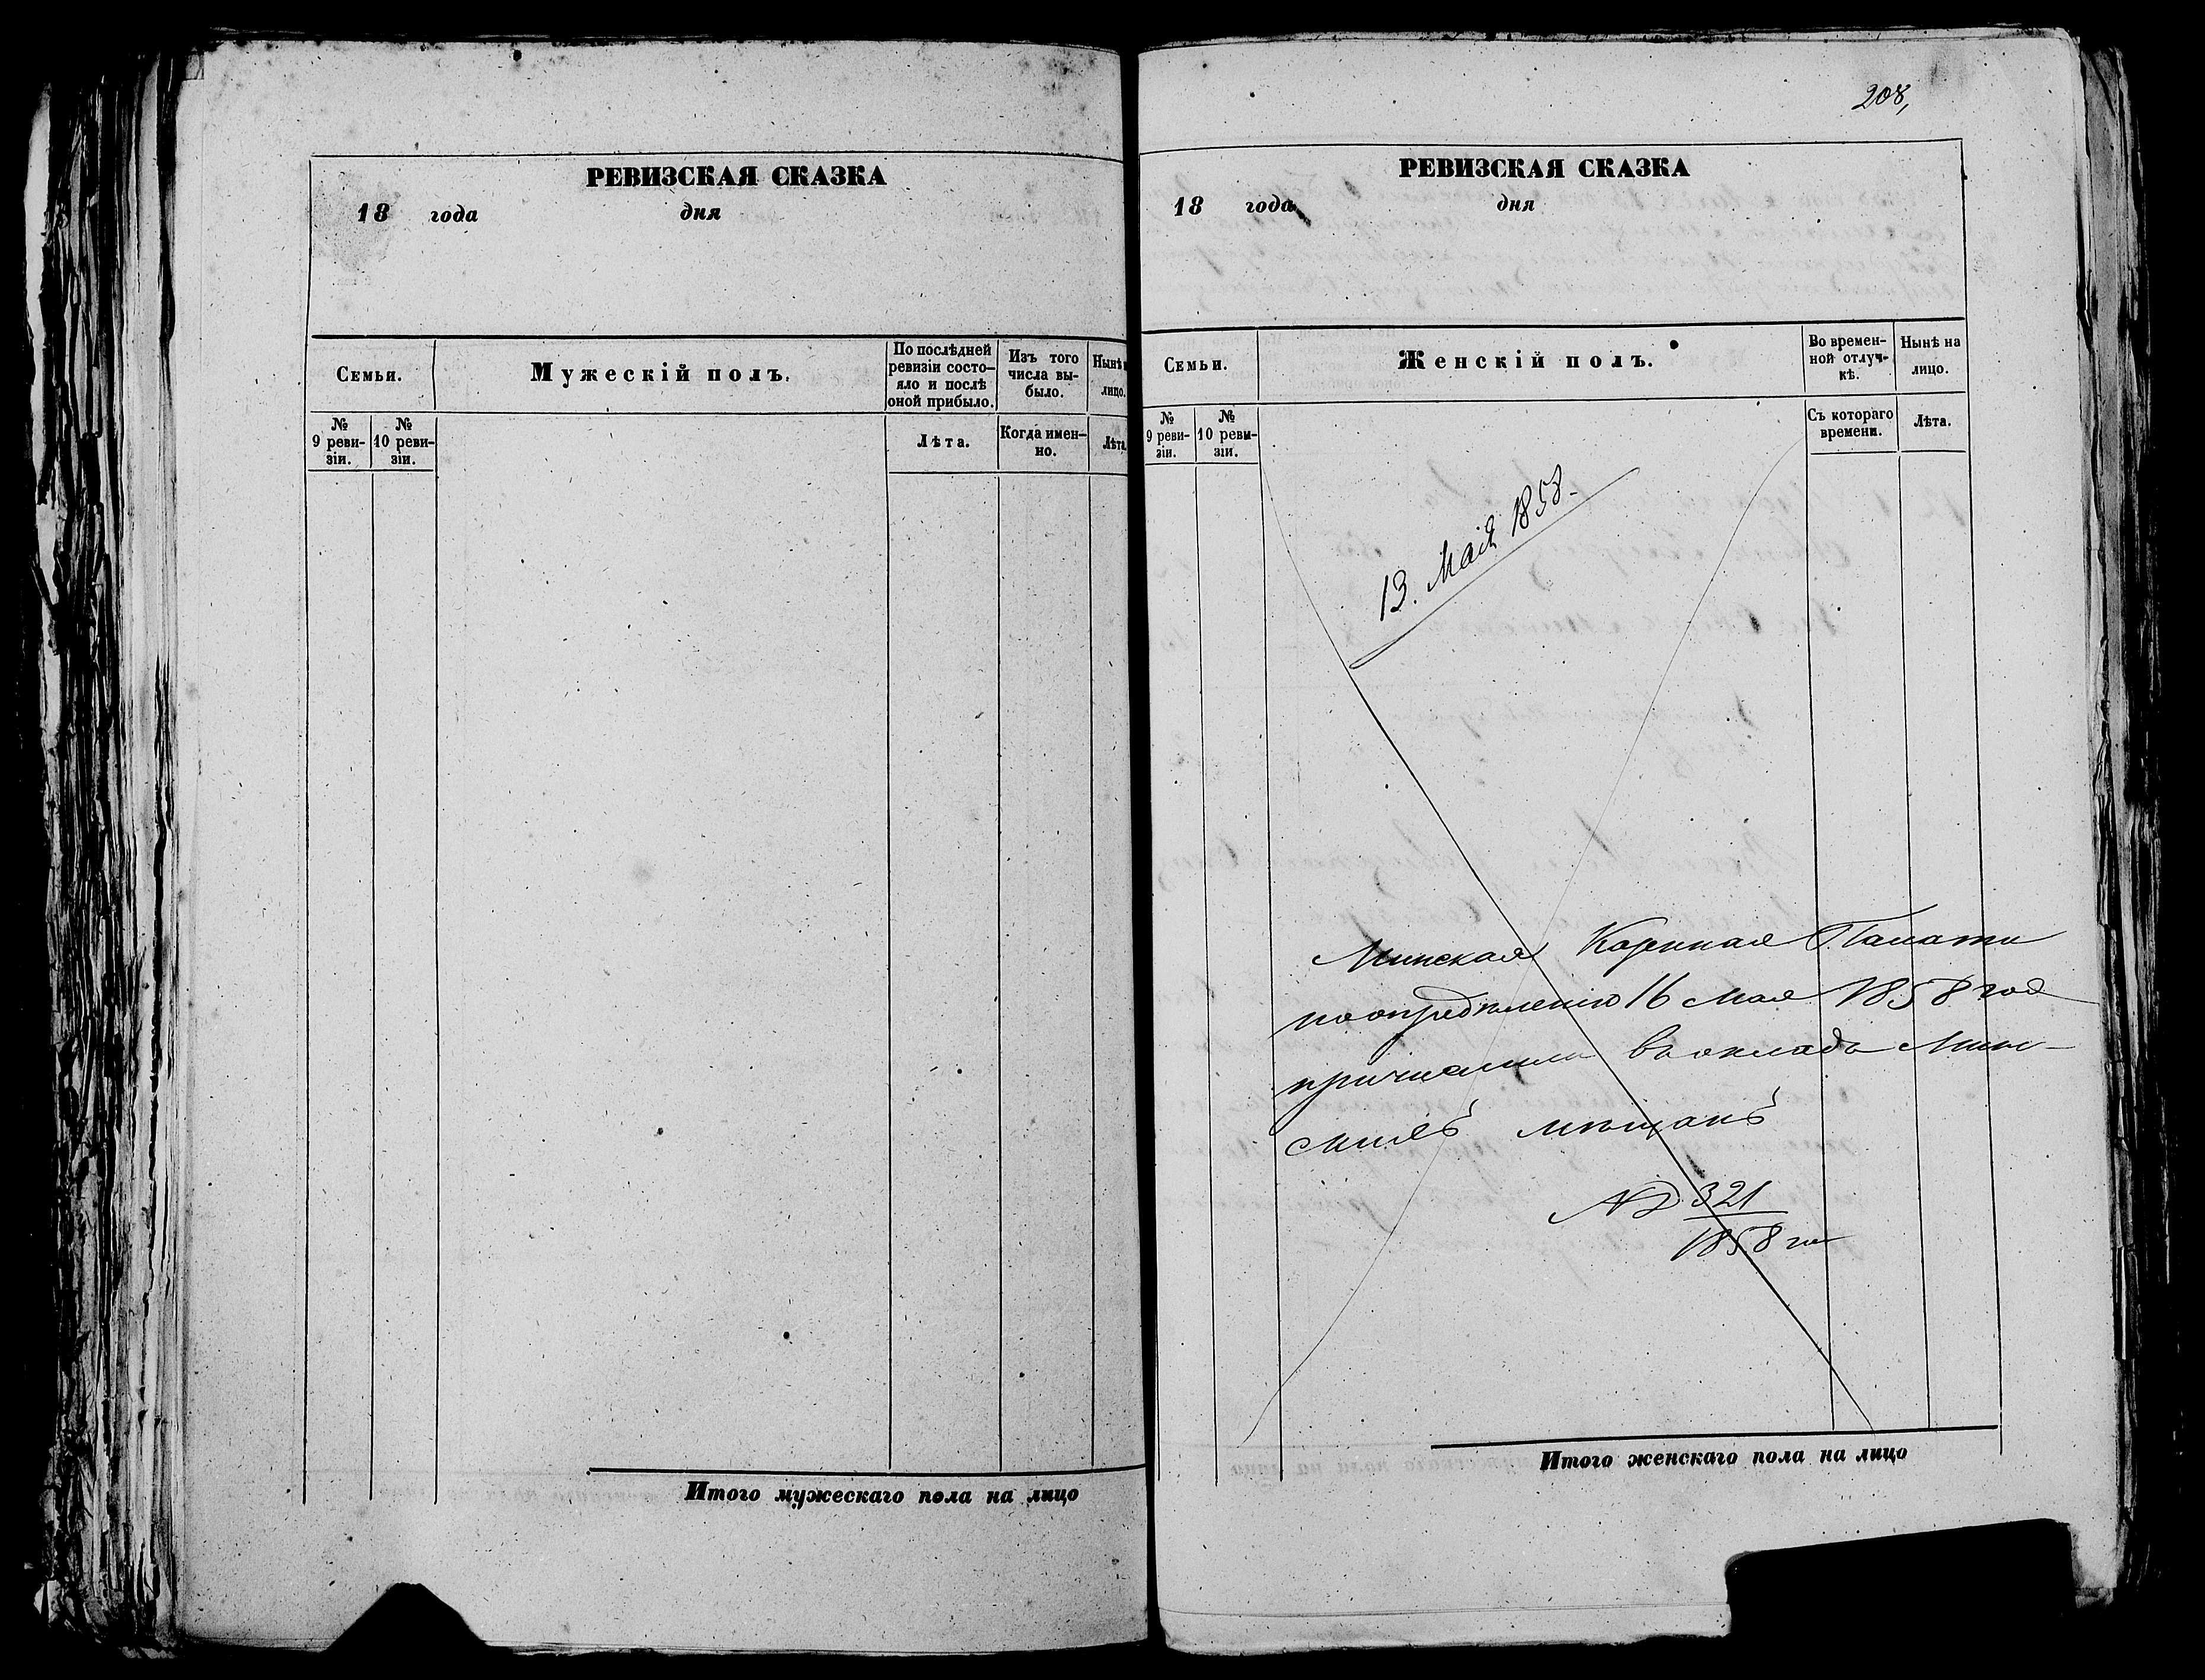 РЕВИЗСКАЯ СКАЗКА
18 года дня
Семьи.
Мужескій полъ.
По послѣдней
ревизіи состо-
яло и послѣ
оной прибыло.
Изъ того
числа вы-
было.
Нынѣ
лицо.
№
9 реви-
зіи.
№
10 реви-
зіи.
Лѣта.
Когда имен-
но.
Лѣта
Итого мужескаго пола на лицо
208,
РЕВИЗСКАЯ СКАЗКА
18 года дня
Семьи.
Женскій полъ.
Во времен-
ной отлуч-
кѣ.
Нынѣ на
лицо.
№
9 реви-
зіи.
№
10 реви-
зіи.
Съ котораго
времени.
Лѣта.
13. Маія 1858.
Минская Казенная Палата
по опредѣленію 16 Мая 1858 год
причислила въ окладъ Минс-
скихъ мѣщанъ
№ 321
1858 г
Итого женскаго пола на лицо